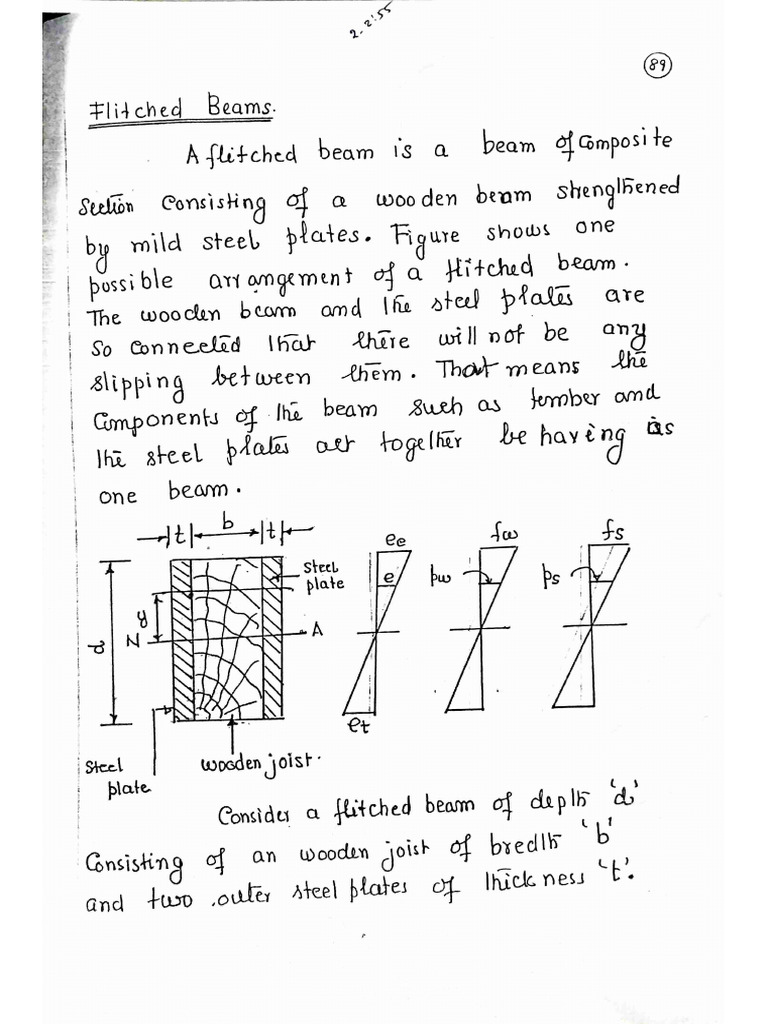 2-2:55
89
Flitched Beams.
A flitched beam is a beam of Composite
Section Consisting of a wooden beam shengthened
by mild steel plates. Figure shows one
possible arrangement of a flitched beam.
The wooden beam and the steel plates are
So Connected that there will not be any
slipping between them. That means the
Components of the beam such as tember and
the steel plates act together be having as
one beam.
t b t
ec fw fs
steel
plate
e pw ps
y
d
N A
et
Steel
plate
wooden joist.
Consider a flitched beam of depth 'd'
Consisting of an wooden joist of bredth 'b'
and two outer steel plates of thickness 't'.